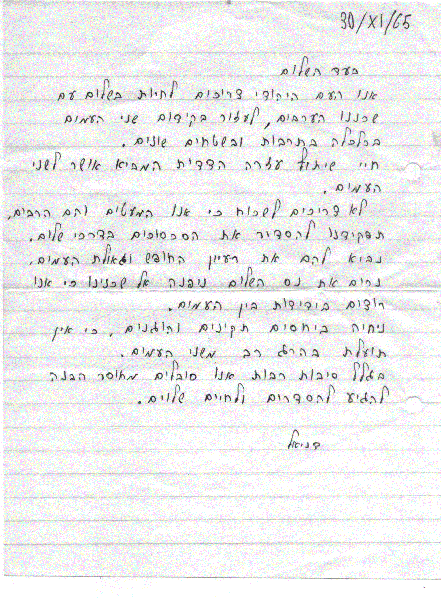 30/XI/65
בעד השלום
אנו העם היהודי צריכים לחיות בשלום עם
שכננו הערבים, לעזור בקידום שני העמים
בכלכלה בתרבות ובשטחים שונים.
חיי שיתוף עזרה הדדית המביא אושר לשני
העמים.
לא צריכים לשכוח כי אנו המעטים והם הרבים,
תפקידנו להסדיר את הסכסוכים בדרכי שלום.
נביא להם את רעיון החופש וגאולת העמים.
נרים את נס השלום ניפנה אל שכנינו כי אנו
רוצים בידידות בין העמים.
ניחיה ביחסים תקינים והוגנים, כי אין
תועלת בהרג רב משני העמים.
בגלל סיבות רבות אנו סובלים מחוסר הבנה
להגיע להסדרים ולחיים שלוים.
דניאל